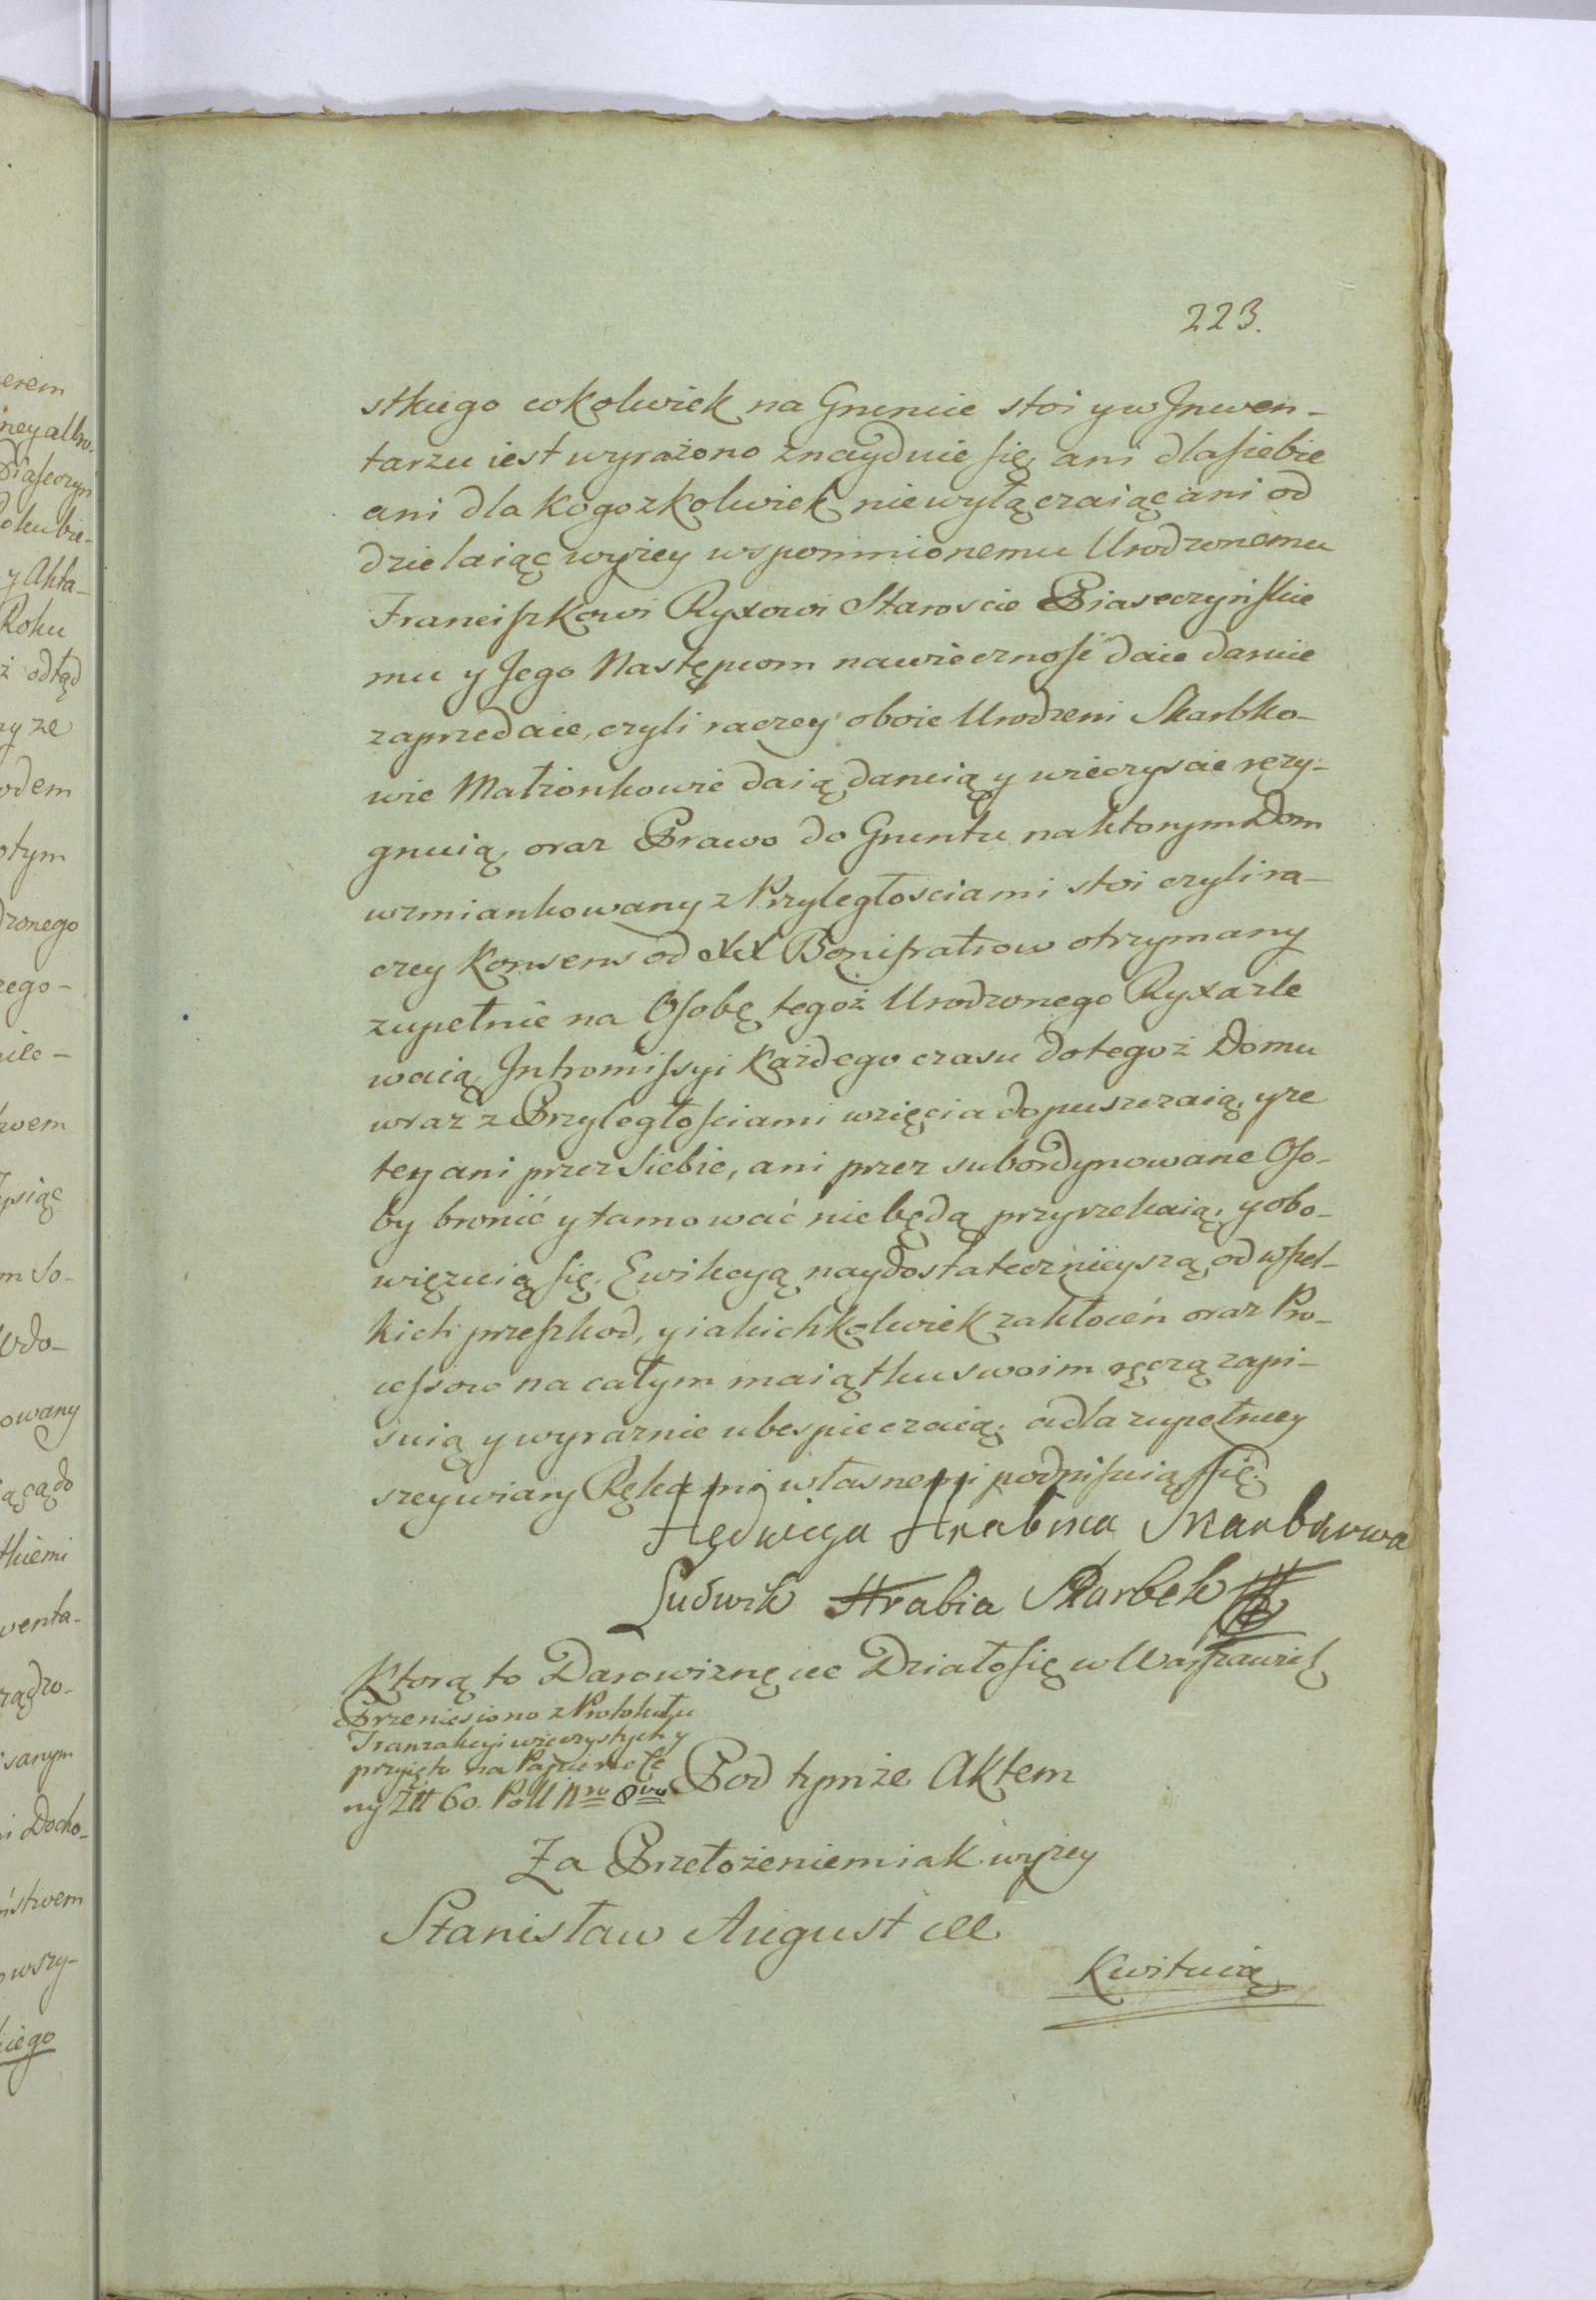 223.
stkiego cokolwiek na Gruncie stoi y w Jnwen-
tarzu iest wyrażono znayduie się, ani dla siebie
ani dla kogożkolwiek nie wyłączaiąc ani od
dzielaiąc wyżey wspomnionemu Urodzonemu
Franciszkowi Ryxowi Staroscie Piaseczyńskie
mu y Jego Następcom na wieczność daie daruie
zaprzedaie, czyli raczey oboie Urodzeni Skarbko-
wie Małżonkowie daią daruią y wieczyscie rezy-
gnuią, oraz Prawo do Gruntu na ktorym Dom
wzmiankowany z Przyległosciami stoi czyli ra-
czey Konsens od XX Bonifratrow otrzymany
zupełnie na Osobę tegoż Urodzonego Ryxa zle
waią, Intromissyi każdego czasu do tegoż Domu
wraz z Przyległosciami wzięcia dopuszczaią, y że
tey ani przez Siebie, ani przez subordynowane Oso-
by bronić y tamować nie będą przyrzekaią, y obo-
więzuią się. Ewikcyą naydostatecznieyszą od wszel-
kich przeszkod, y iakichkolwiek zakłoceń oraz Pro-
cessow na całym maiątku swoim ręczą zapi-
suią y wyraznie ubespieczaią, a dla zupełniey
szey wiary Rękami własnemi podpisuią się.
Hedwiga Hrabina Skarbkowa
Ludwik Hrabia Skarbek
Ktorą to Darowiznę etc Działo się w Warszawie
Przeniesiono z Protokułu
Tranzakcyi wieczystych y
przyięto na Papier
ny Złt 60. Poll Nro 8vo
Pod tymże Aktem
Za Przełożeniem iak wyżey
Stanisław August etc
Kwituią